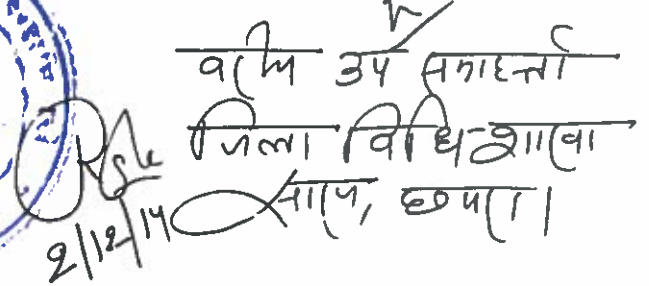 वरीय उप समाहर्त्ता
जिला विधि-शाखा
सारण, छपरा।
2/12/14